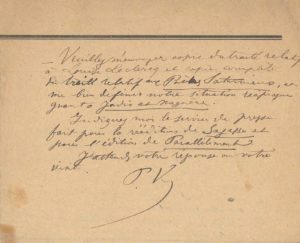 — Veuillez m'envoyer copie du traité relatif
à Louise Leclercq et copie complète
du traité relatif aux Poèmes Saturniens, et
me bien définir notre situation réciproque
quant à Jadis et Naguère.
Indiquez moi le service de presse
fait pour la réédition de Sagesse et
pour l'édition de Parallèlement
J'attends votre réponse ou votre
venue.
P.V.